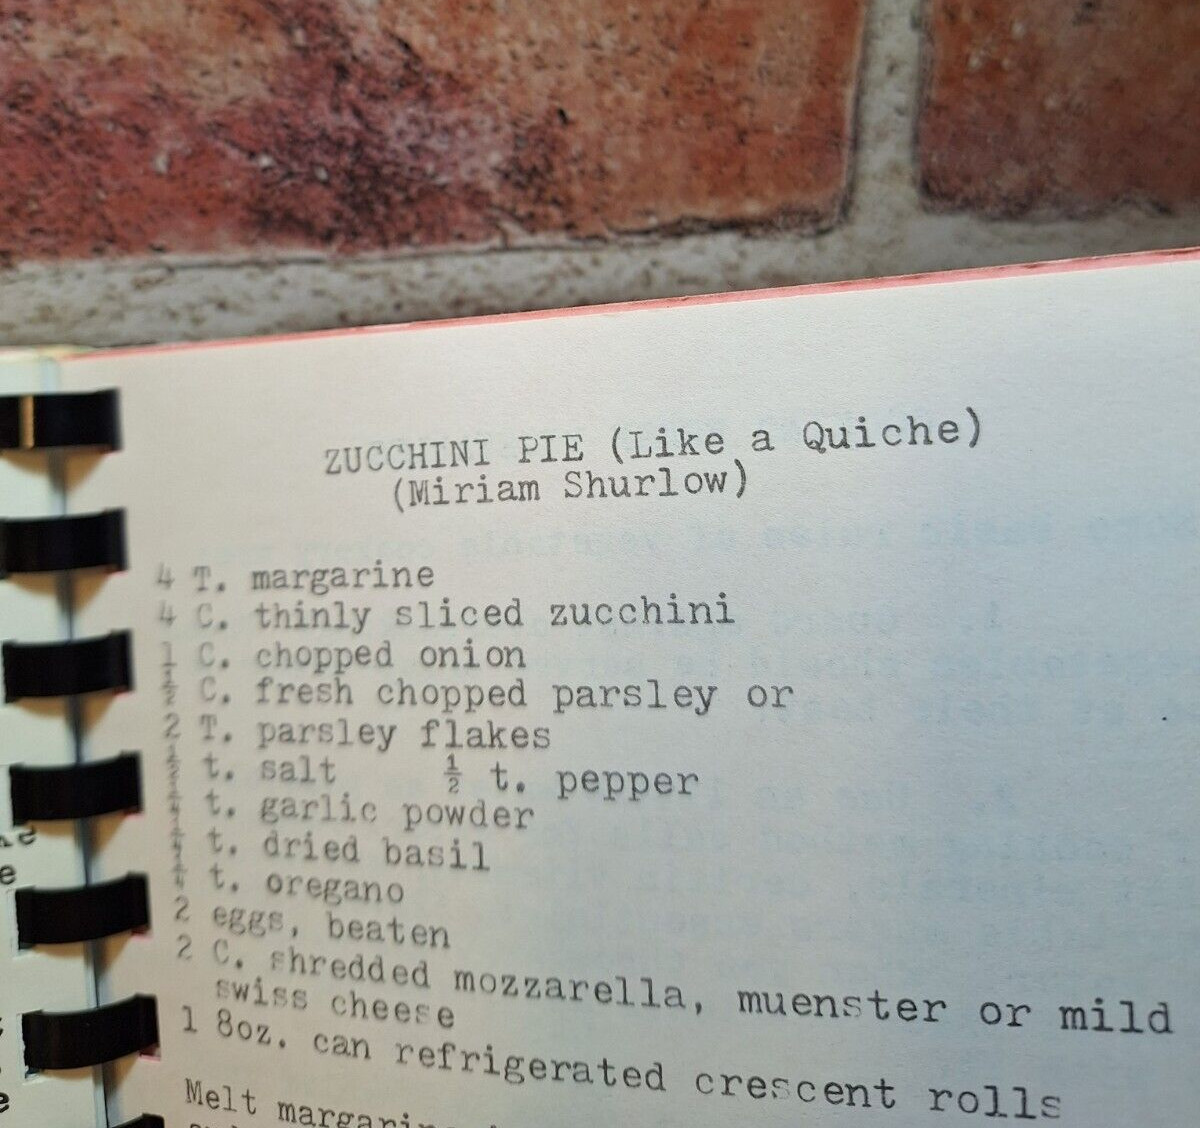 ZUCCHINI PIE (Like a Quiche)
(Miriam Shurlow)
4 T. margarine
4 C. thinly sliced zucchini
1 C. chopped onion
½ C. fresh chopped parsley or
2 T. parsley flakes
½ t. salt ½ t. pepper
¼ t. garlic powder
¼ t. dried basil
¼ t. oregano
2 eggs, beaten
2 C. shredded mozzarella, muenster or mild
swiss cheese
1 8oz. can refrigerated crescent rolls
Melt